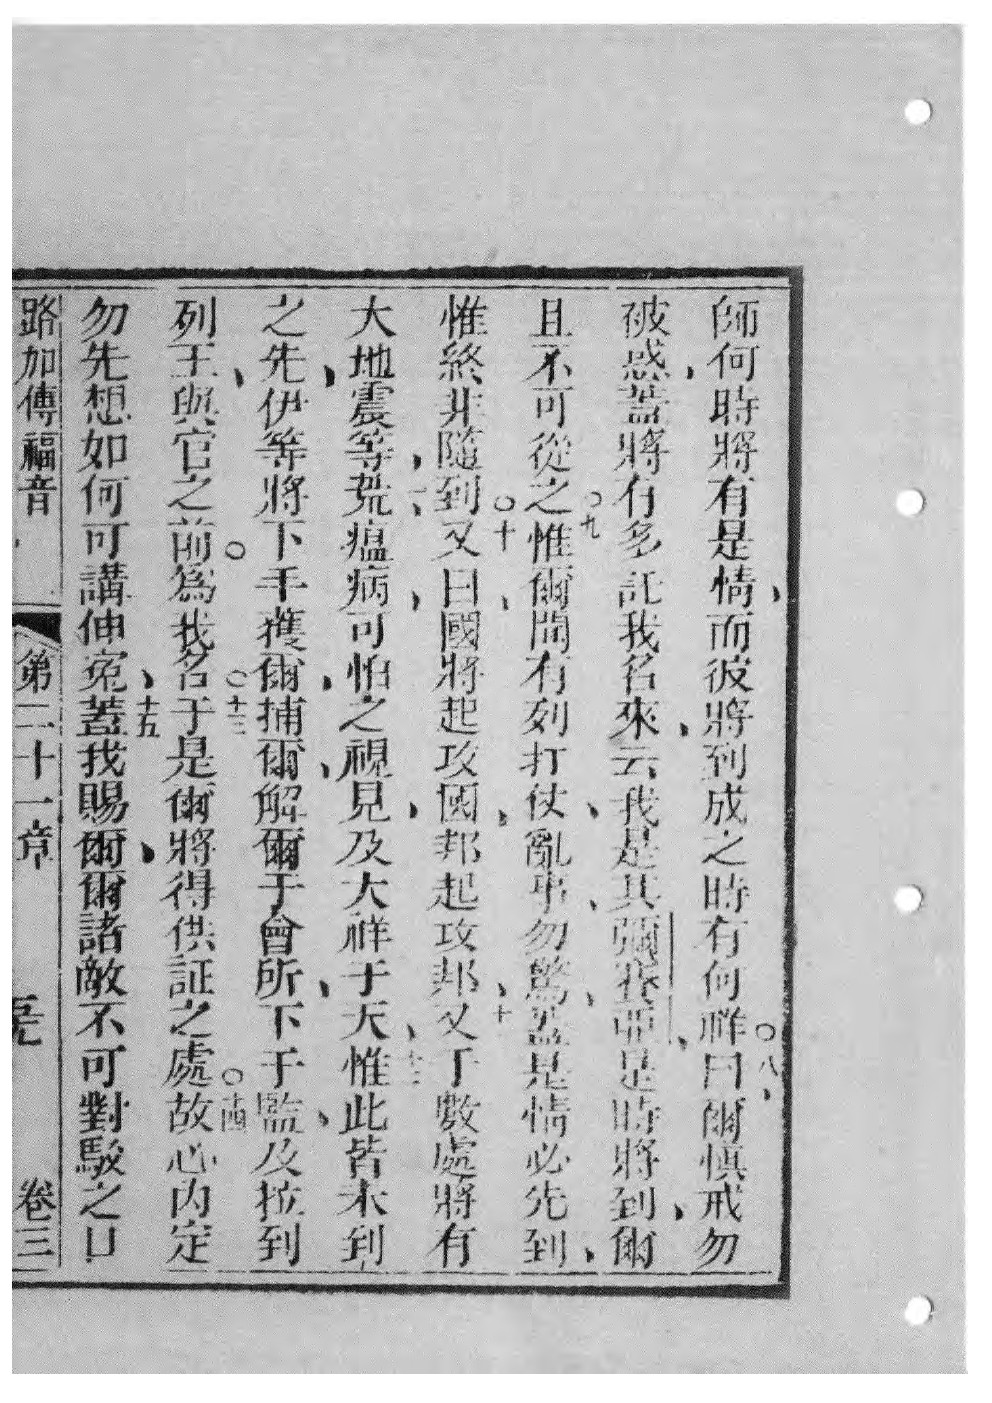 師何時將有是情、而彼將到成之時有何祥○八曰、爾慎戒勿
被惑、蓋將有多託我名來、云我是其彌賽亞、是時將到、爾
且不可從之○九惟爾聞有列打仗、亂事、勿驚、蓋是情必先到、
惟終非隨到○十又曰、國將起攻國、邦起攻邦、十一又于數處將有
大地震等、荒、瘟病、可怕之視見、及大祥于天、十二惟此皆未到
之先、伊等將下手獲爾、捕爾、解爾于會所、下于監、及拉到
列王、與官之前○為我名○十三于是爾將得供証之處○十四故心內定
勿先想如何可講伸寃、十五蓋我賜爾、爾諸敵不可對駁之口
路加傳福音 第二十一章 卷三